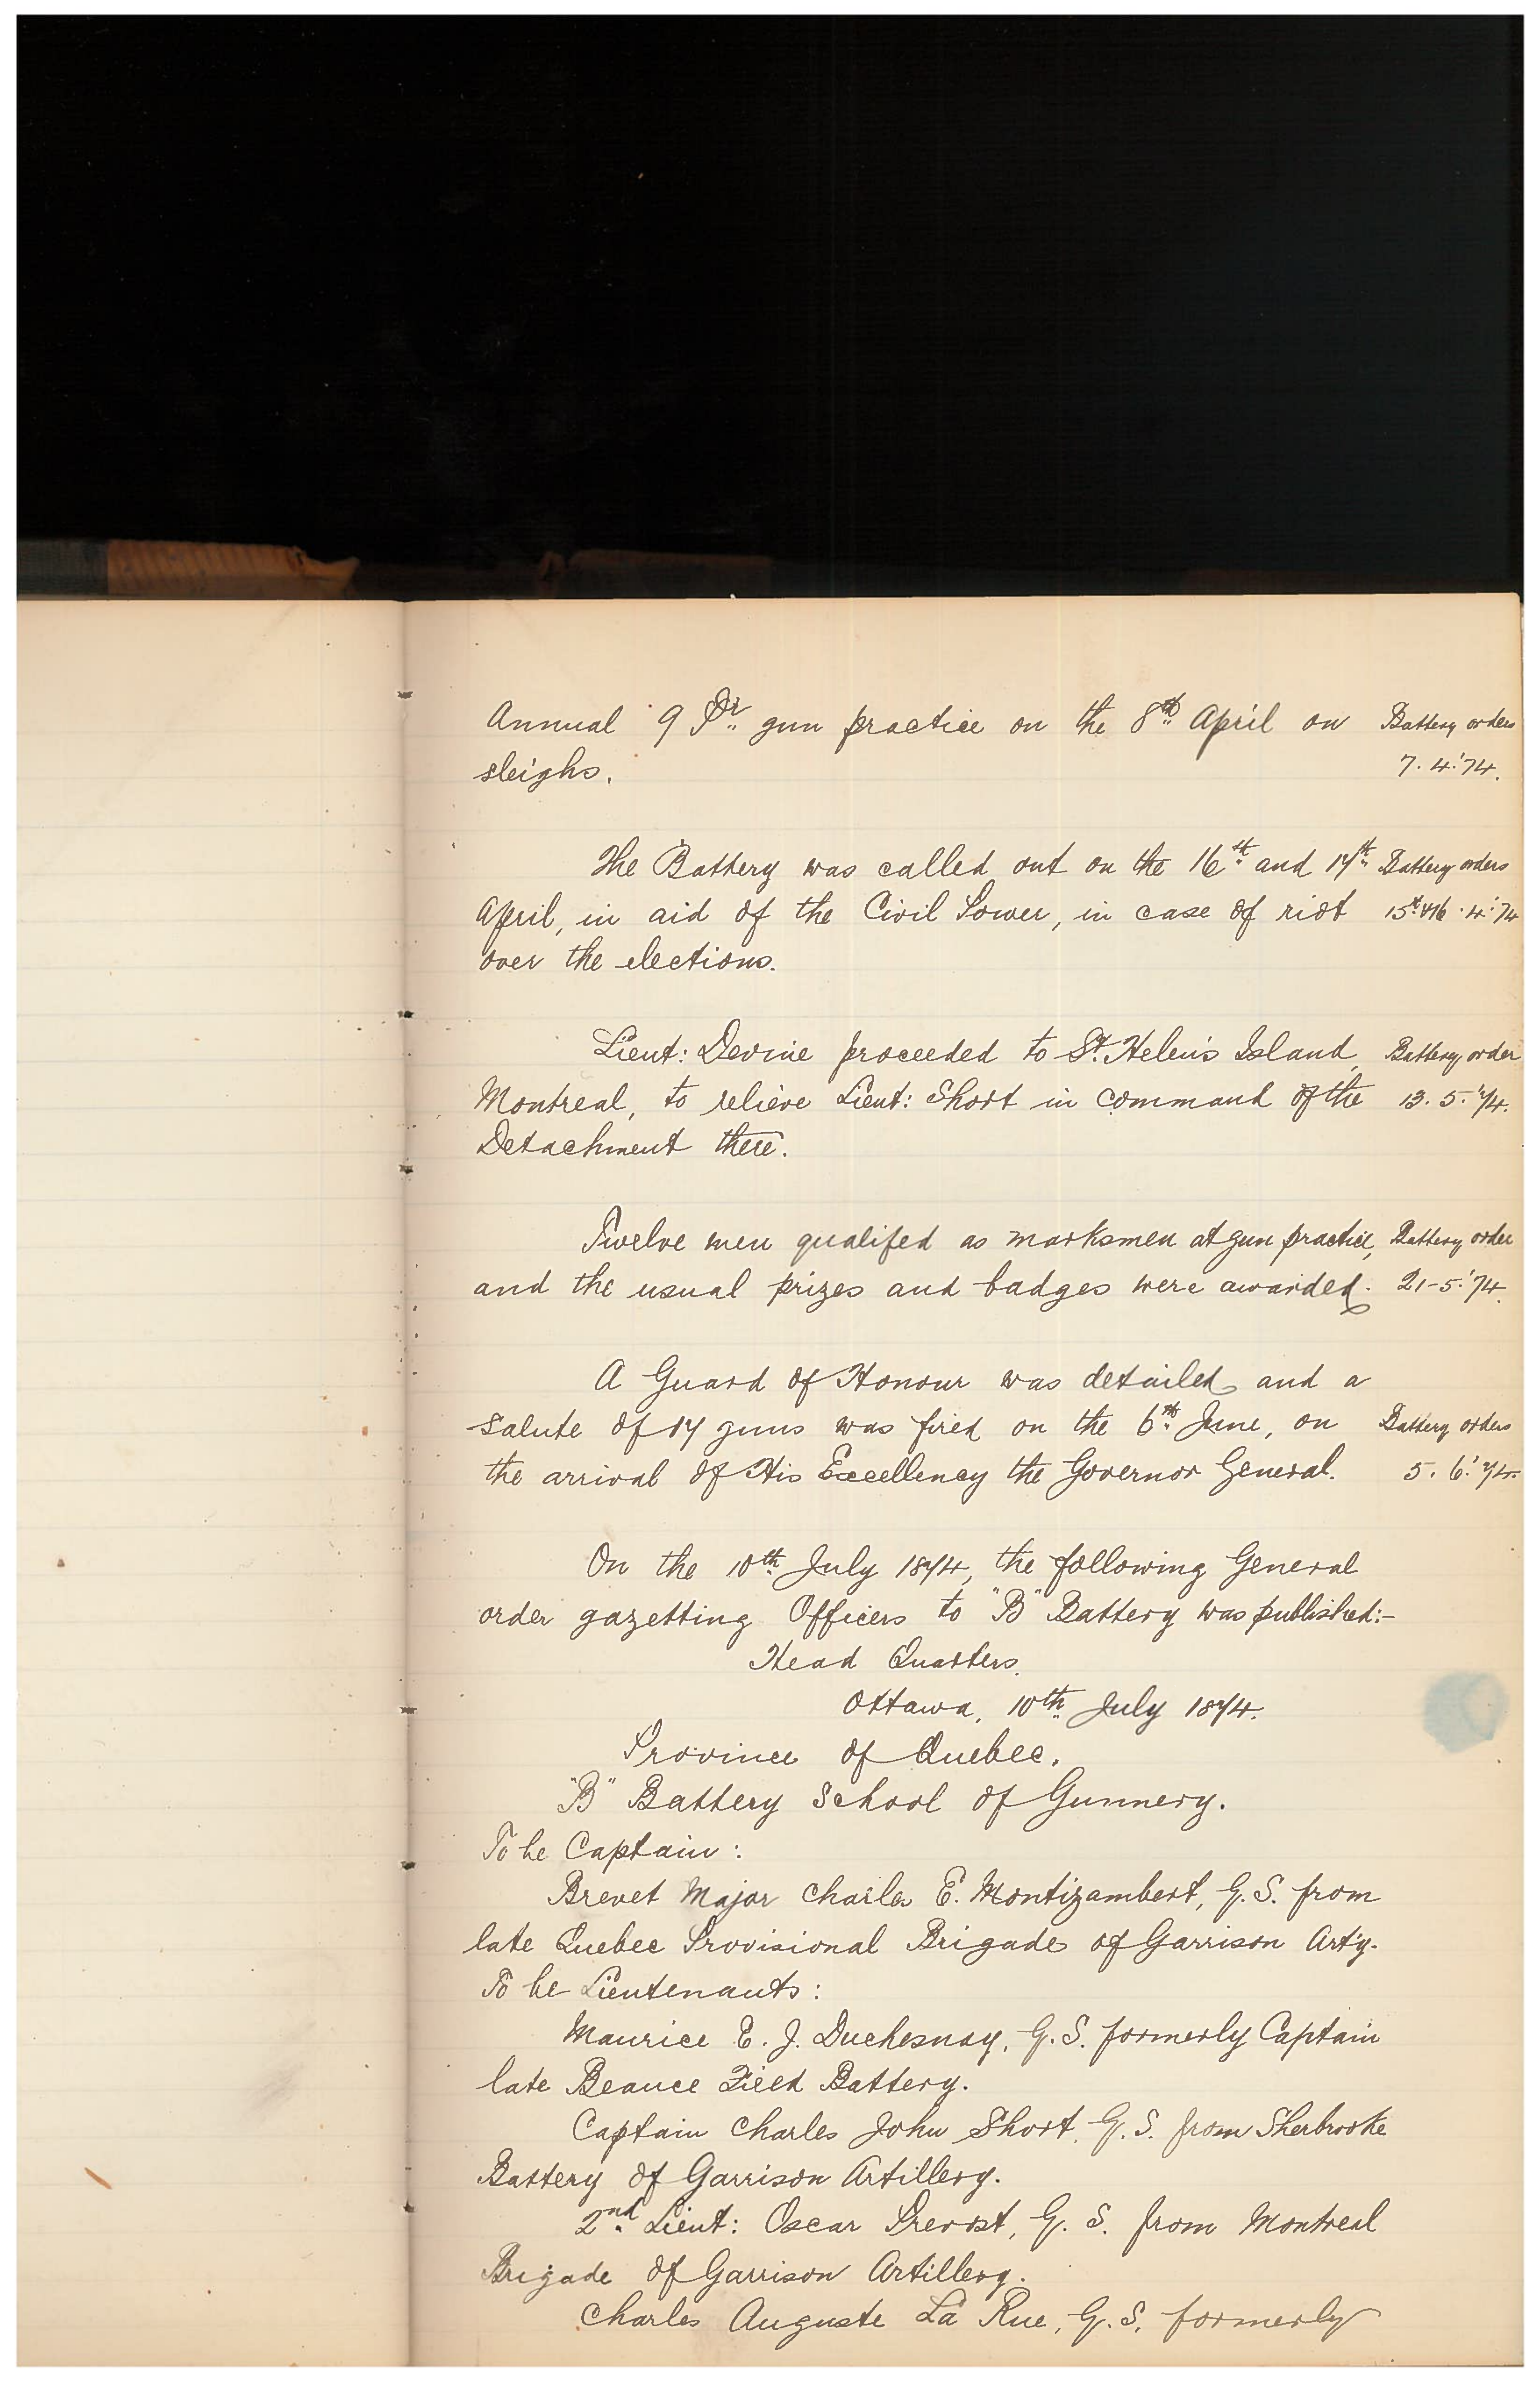 Annual 9 Pr. gun practice on the 8th April on Battery orders
sleighs. 7. 4.'74.
The Battery was called out on the 16th and 17th Battery orders
April, in aid of the Civil Power, in case of riot 15th &16 . 4.'74
over the elections.
Lieut: Devine proceeded to St. Helen's Island, Battery order
Montreal, to relieve Lieut: Short in command of the 13. 5.'74.
Detachment there.
Twelve men qualifed as marksmen at gun practice, Battery order
and the usual prizes and badges were awarded. 21-5.'74.
A Guard of Honour was detailed and a
salute of 17 guns was fired on the 6th June, on Battery orders
the arrival of His Excellency the Governor General. 5. 6.'74.
On the 10th July 1874, the following General
order gazetting Officers to "B" Battery was published:-
Head Quarters,
Ottawa, 10th July 1874.
Province of Quebec.
"B" Battery School of Gunnery.
To be Captain:
Brevet Major Charles E. Montizambert, G.S. from
late Quebec Provisional Brigade of Garrison Art'y.
To be Lieutenants:
Maurice E. J. Duchesnay, G.S. formerly Captain
late Beauce Field Battery.
Captain Charles John Short, G.S. from Sherbrooke
Battery of Garrison Artillery.
2nd Lieut: Oscar Prevost, G. S. from Montreal
Brigade of Garrison Artillery.
Charles Auguste La Rue, G.S. formerly